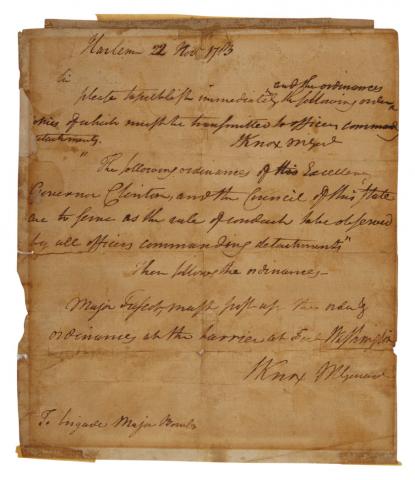 Harlem 22 Nov 1783
Sir
and the ordinances
please to publish immediately the following orders
copies of which must be transmitted to officers commandg
detachments.
HKnox MGenl
"The following ordinances of his Excellency
Governor Clinton, and the Council of this State
are to serve as the rule of conduct to be observed
by all officers commanding detachments"
Then follows the ordinances—
Major must post up the
ordinances at the barrier at Fort Washington
HKnox MGeneral
To brigade Major